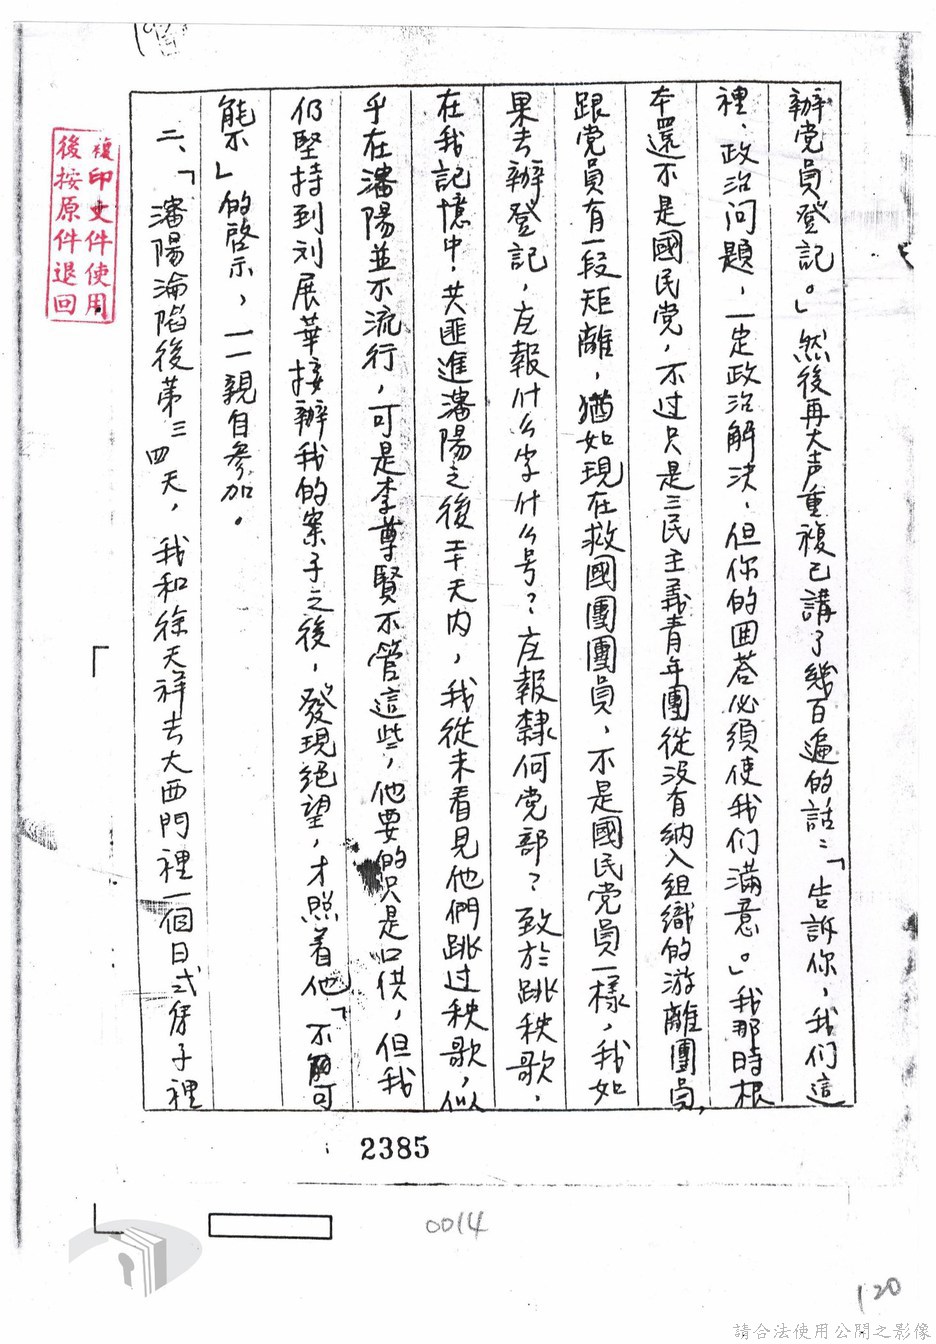 辦党員登記。」然後再大声重複已講了幾百遍的話:「告訴你,我们這
裡,政治问題,一定政治解決,但你的回答必須使我们滿意。」我那時根
本還不是國民党,不过只是三民主義青年團從没有納入組織的游離團員,
跟党員有一段矩離,猶如現在救國團團員,不是國民党員一樣,我如
果去辦登記,应報什么字什么号?应報隸何党部?致於跳秧歌,
在我記憶中,共匪進瀋陽之後二十天内,我從未看見他們跳过秧歌,似
乎在瀋陽並不流行,可是李尊賢不管這些,他要的只是口供,但我
仍堅持到刘展華接辦我的案子之後,發現絕望,才照着他「不可
能不」的啓示,一一親自參加。
二、「瀋陽淪陷後第三四天,我和徐天祥去大西門裡一個日式房子裡
複印文件使用
後按原件退回
2385
0014
120
請合法使用公開之影像